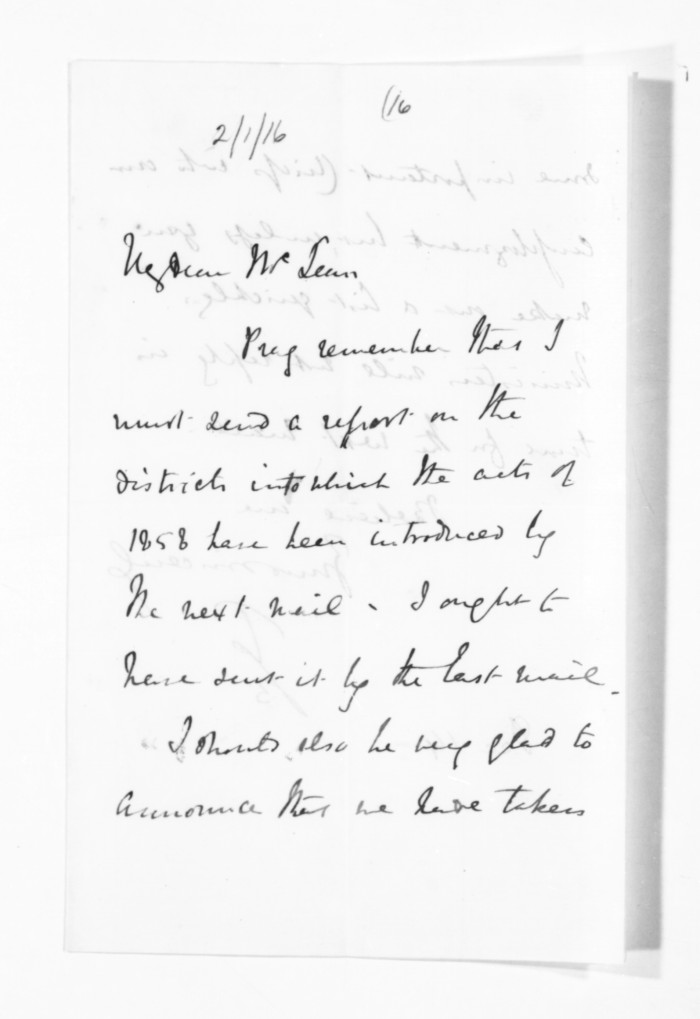 (16
2/1/16
My dear Mc Lean
Pray remember that I
must send a report on the
districts into which the acts of
1858 have been introduced by
the next mail - I ought to
have sent it by the last mail.
I should also be very glad to
announce that we have taken